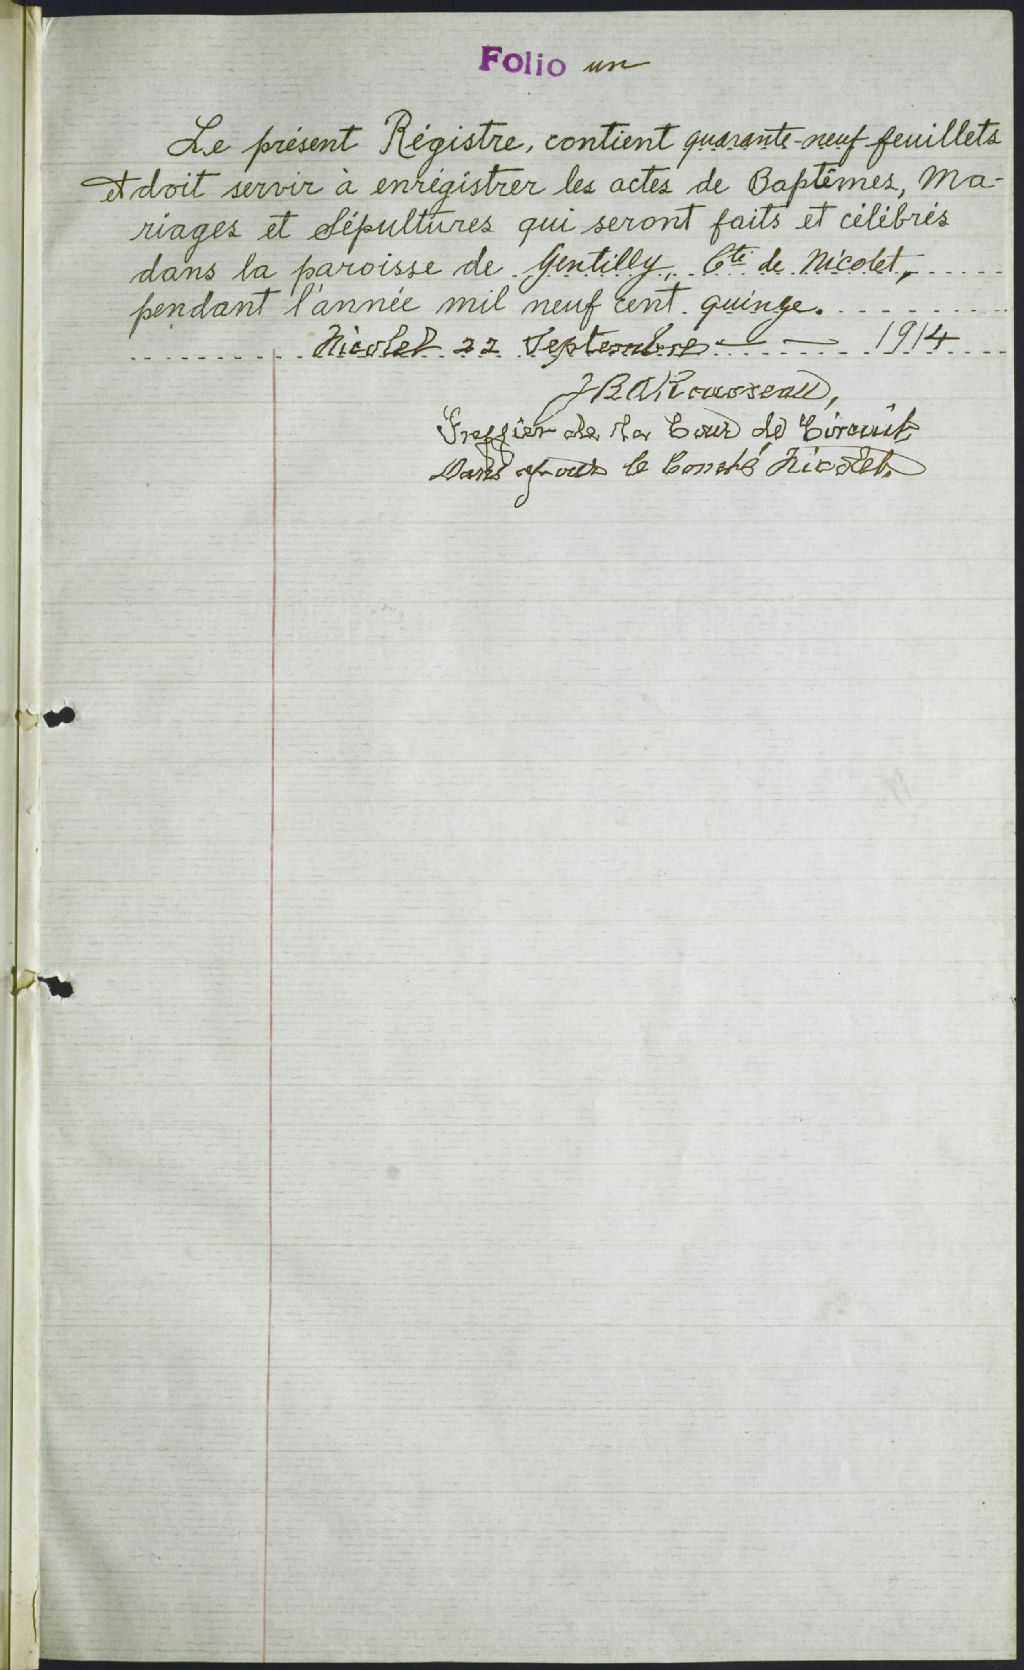 Folio un
Le présent Régistre, contient quarante-neuf feuillets
et doit servir à enrégistrer les actes de Baptêmes, Ma-
riages et Sépultures qui seront faits et célébrés
dans la paroisse de Gentilly, Cté de Nicolet,
pendant l'année mil neuf cent quinze.
Nicolet 22 Septembre 1914
JBARousseau,
Greffier de la Cour de Circuit
Dans & pour le Comté Nicolet.